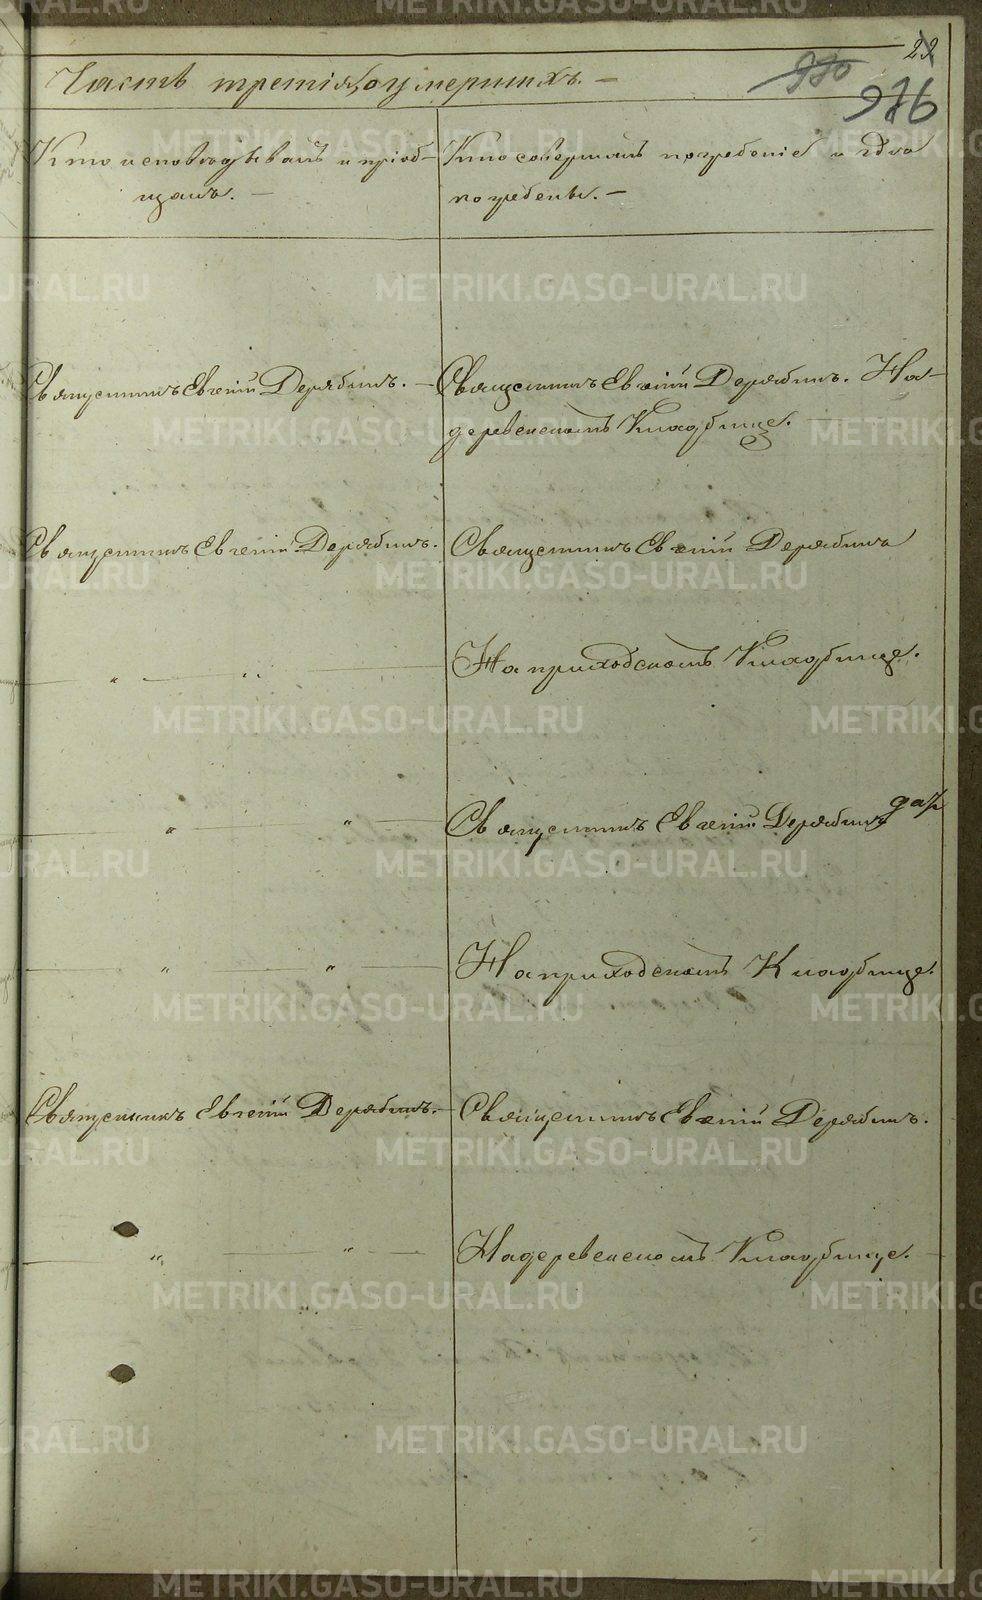 22
Часть третія, о умершихъ. —
980
976
Кто исповѣдывалъ и пріоб-
щалъ. —
Кто совершалъ погребеніе и гдѣ
погребены. —
Священникъ Евгеній Дерябинъ. —
Священникъ Евгеній Дерябинъ. На
деревенскомъ Кладбище.
Священникъ Евгеній Дерябинъ.
Священникъ Евгеній Дерябинъ
На приходскомъ Кладбище.
Священникъ Евгеній Дерябинъ
На приходскомъ Кладбище.
Священникъ Евгеній Дерябинъ. —
Священникъ Евгеній Дерябинъ.
На деревенскомъ Кладбище. —
METRIKI.GASO-URAL.RU